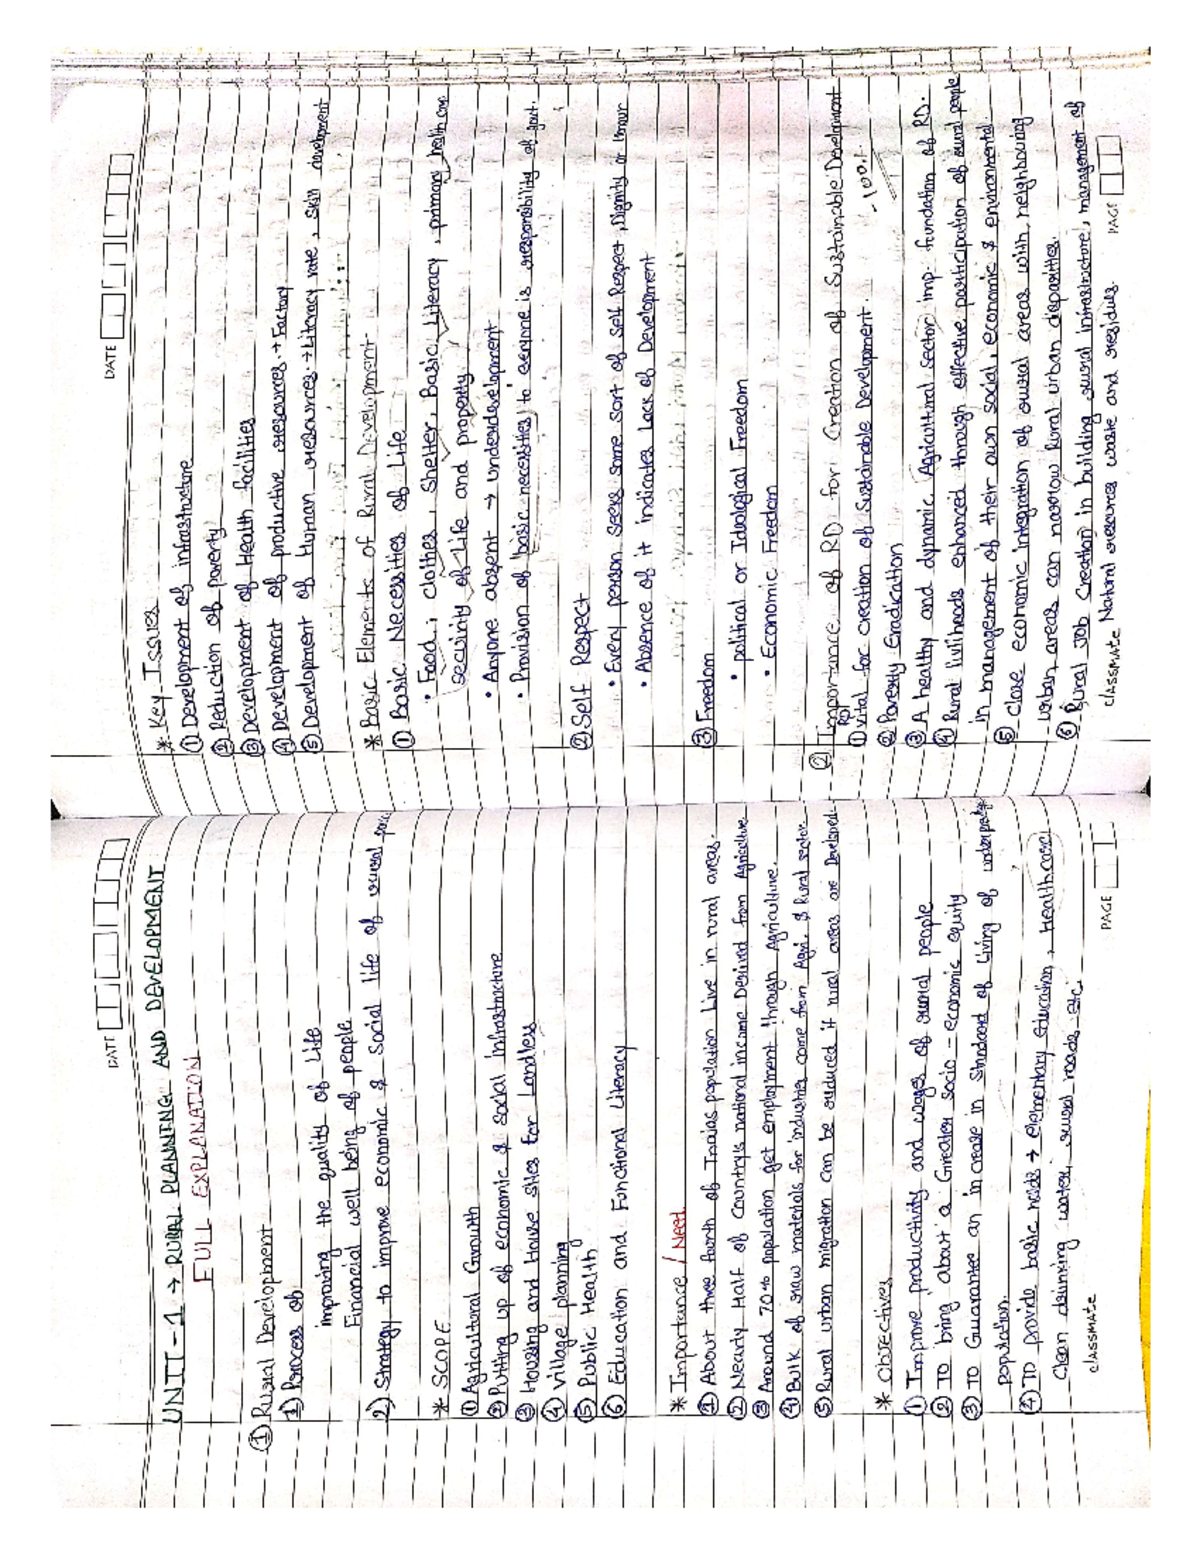 DATE
UNIT-1 → RURAL PLANNING AND DEVELOPMENT
FULL EXPLANATION
① Rural Development
1) Process of
improving the quality of Life
Financial well being of people
2) Strategy to improve economic & Social life of rural
* SCOPE
① Agricultural Growth
② Putting up of economic & social infrastructure
③ Housing and House sites for Landless
④ Village planning
⑤ Public Health
⑥ Education and Functional Literacy
* Importance / Need
① About three fourth of Indias population Live in rural areas.
② Nearly Half of Country's national income Derived from Agriculture
③ Around 70% population get employment through Agriculture.
④ Bulk of raw materials for industries come from Agri. & Rural sector
⑤ Rural urban migration can be reduced if rural areas are Developed
* Objectives
① Improve productivity and wages of rural people
② TO bring about a Greater Socio-economic equity
③ TO Guarantee an increase in Standard of Living of
population.
④ TO provide basic needs → Elementary Education, Healthcare,
Clean drinking water, rural roads etc.
classmate
PAGE
DATE
* Key Issues
① Development of infrastructure
② Reduction of poverty
③ Development of Health facilities
④ Development of productive resources → Factory
⑤ Development of Human resources → Literacy rate, skill development
* Basic Elements of Rural Development
① Basic Necessities of Life
• Food, clothes, Shelter, Basic Literacy, primary health care
security of Life and property
• Anyone absent → underdevelopment
• Provision of "basic necessities" to everyone is responsibility of govt.
② Self Respect
• Every person Seeks Some sort of Self Respect, Dignity or Honour
• Absence of it indicates Lack of Development
③ Freedom
• political or Idological Freedom
• Economic Freedom
② Importance of RD for Creation of Sustainable Development
-100%
① RD vital for creation of Sustainable Development
② Poverty Eradication
③ A healthy and dynamic Agricultural sector imp. foundation of RD.
④ Rural livlihoods enhanced through effective participation of rural people
in management of their own social, economic & environmental
⑤ Close economic integration of rural areas with neighbouring
urban areas can narrow Rural urban disparities.
⑥ Rural Job Creation in building rural infrastructure, management of
classmate Natural resources waste and residues.
PAGE